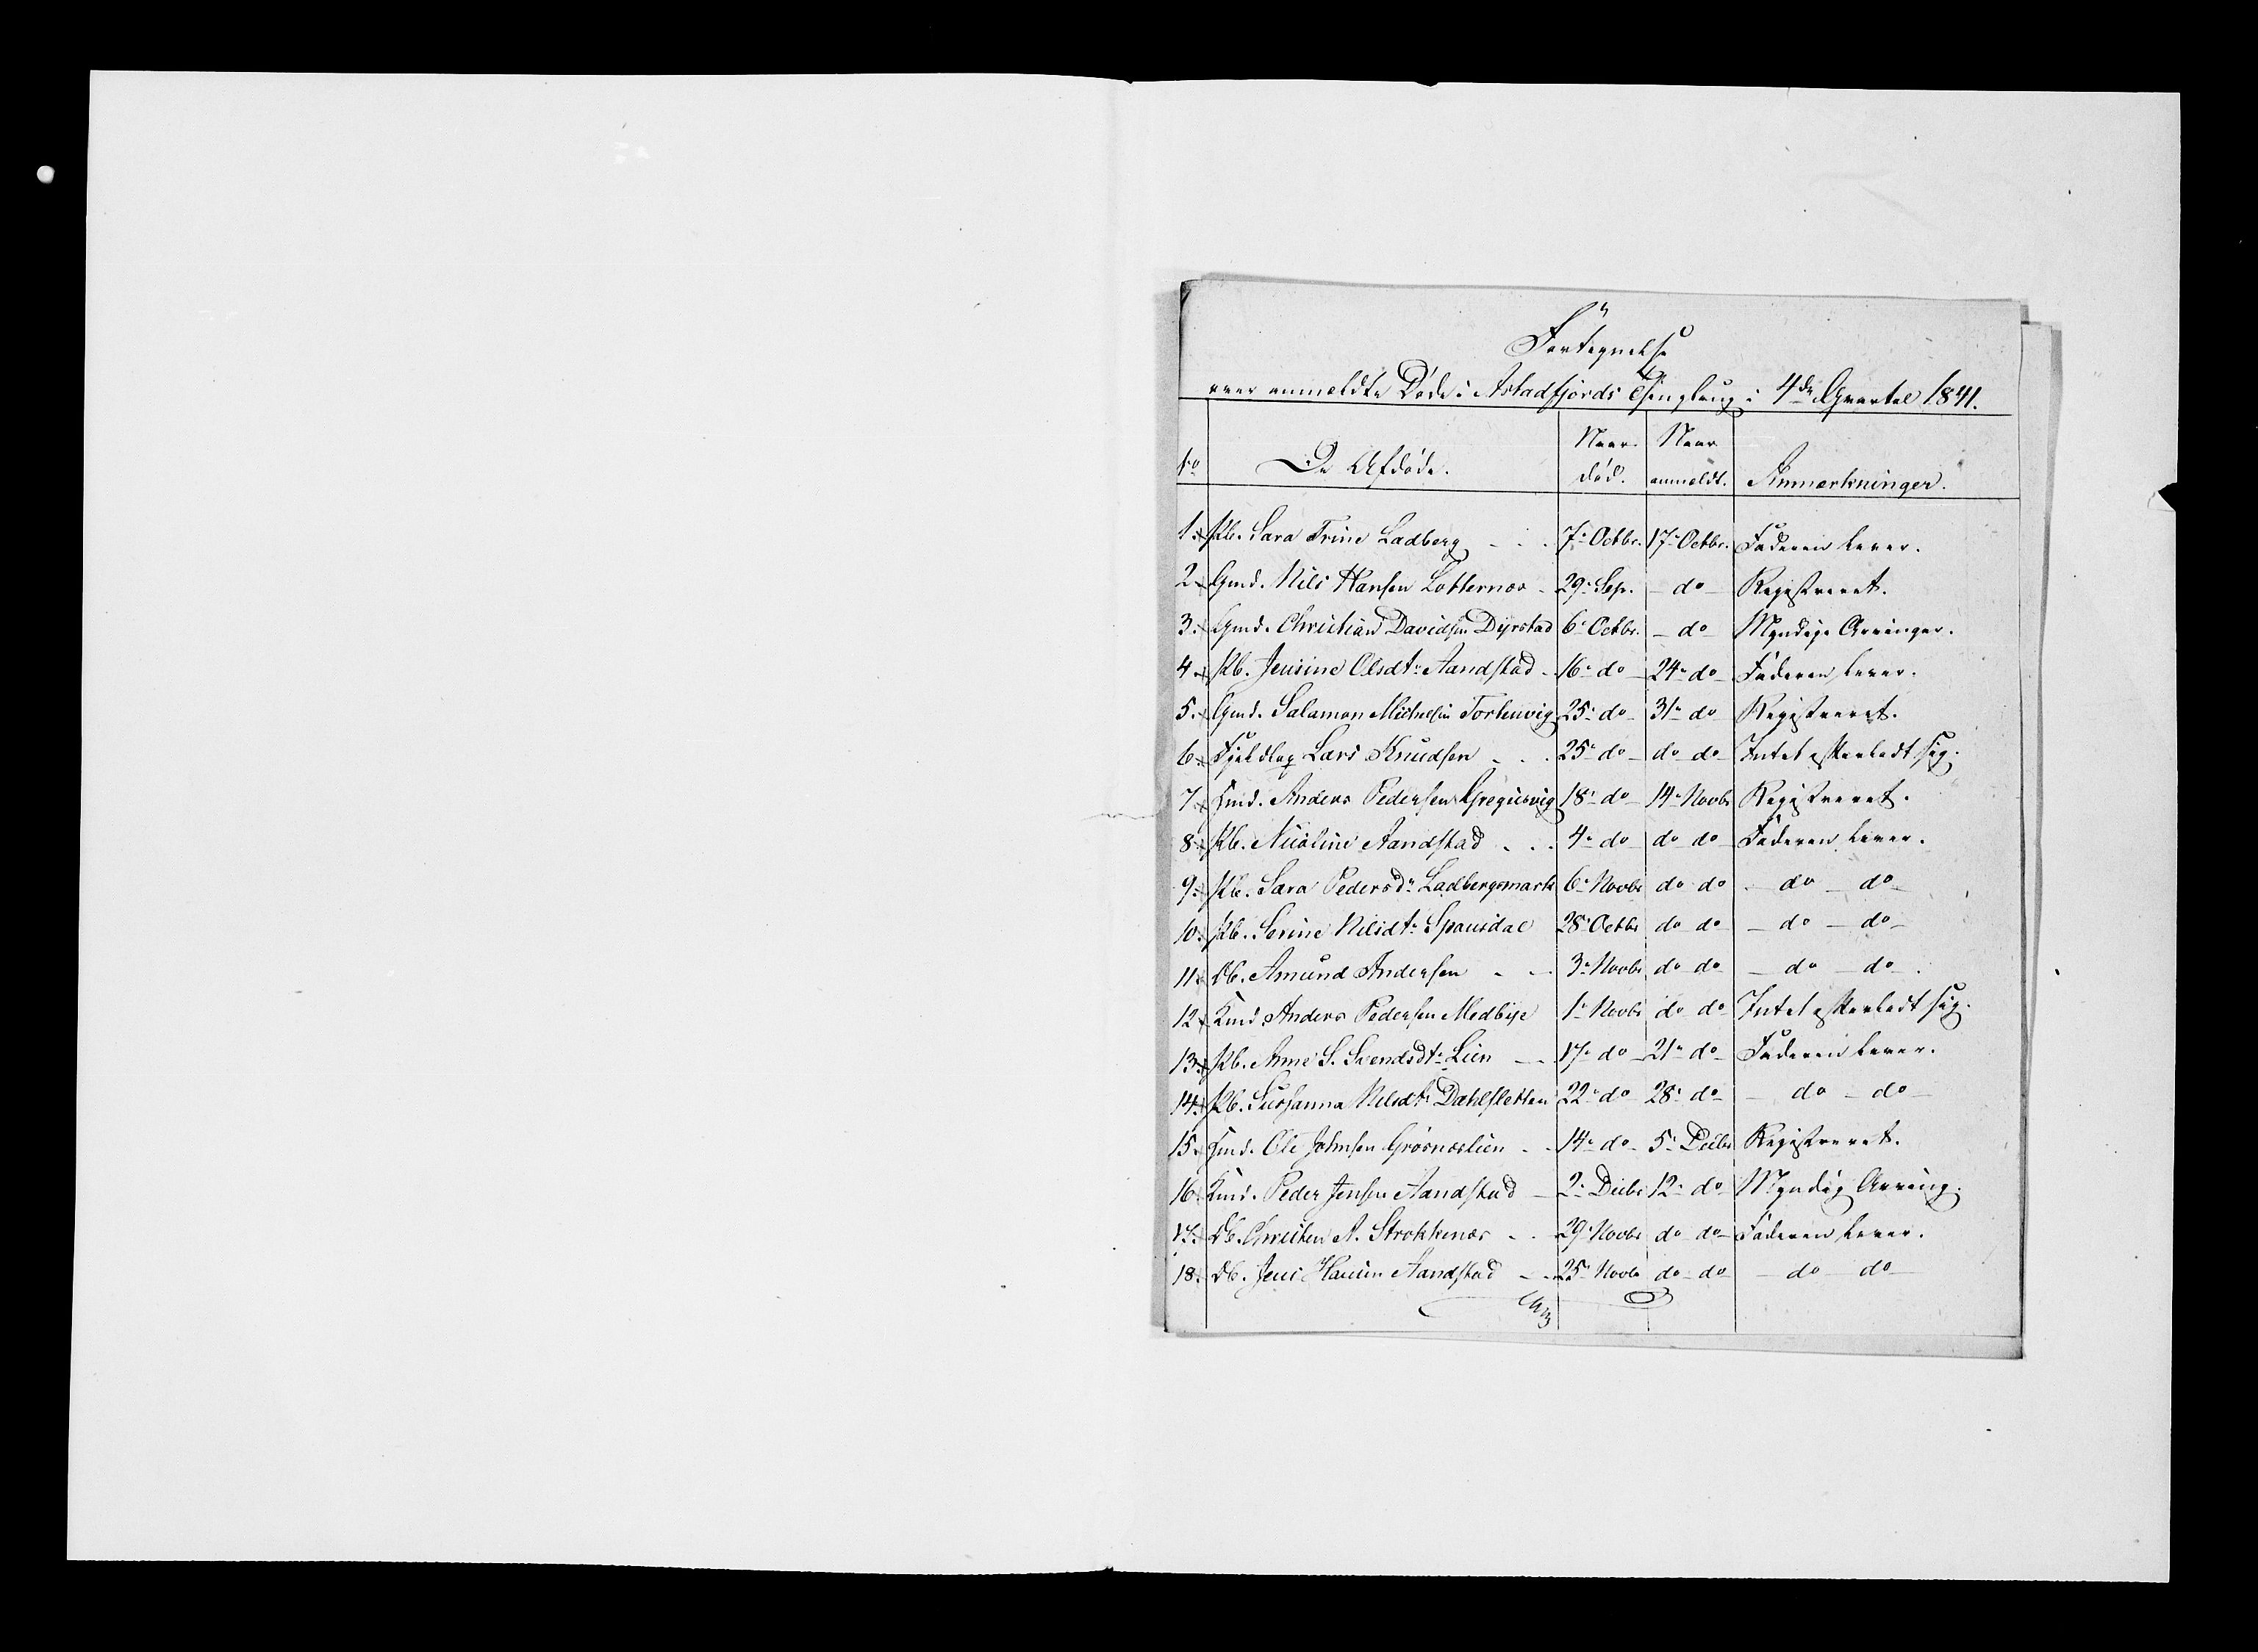 Fortegnelse
over anmeldte Døde i Astadfjords Thinglaug i 4de Qvartal 1841.
No De Afdøde. Naar død. Naar anmeldt. Anmærkninger.
1. Pb. Sara Trine Ladberg - - 7. Octbr. 17. Octbr. Faderen lever.
2. Gmd. Nils Hansen Lotternæs - 29. Sep. - do - Registreret.
3. Gmd. Christian Davidsen Dyrstad 6. Octbr. - do - Myndige Arvinger.
4. Pb. Jensine Olsdt. Aandstad - 16. do - 24. do - Faderen lever.
5. Gmd. Salamon Michelsen 25. do - 31. do - Registreret.
6. Fjeldlap Lars Knudsen - - 25. do - do do - Intet efterladt sig.
7. Gmd. Anders Pedersen 18. do - 14. Novbr Registreret.
8. Pb. Nicoline Aandstad - - 4. do - do do - Faderen lever.
9. Pb. Sara Pedersd. Ladbergsmark 6. Novbr do do - do - do -
10. Pb. Serine Nilsdt. Spansdal 28. Octbr do do - do - do -
11. Db. Amund Andersen - - 3. Novbr do do - do - do -
12. Kmd. Anders Pedersen Medbye 1. Novbr do do Intet efterladt sig.
13. Pb. Anne S. Svendsdt. Lien - 17. do - 21. do - Faderen lever.
14. Pb. Susanna Nilsdt. Dahlsletten 22. do - 28. do - - do - do -
15. Gmd. Ole Johnsen Grøsnæslien - 14. do - 5. Decbr Registreret.
16. Kmd. Peder Jensen Aandstad - 2. Decbr 12. do - Myndig Arving.
17. Db. Christen A. Strokkenæs - - 29. Novbr do do - Faderen lever.
18. Db. Jens Hansen Aandstad - - 25. Novbr do do - do - do -